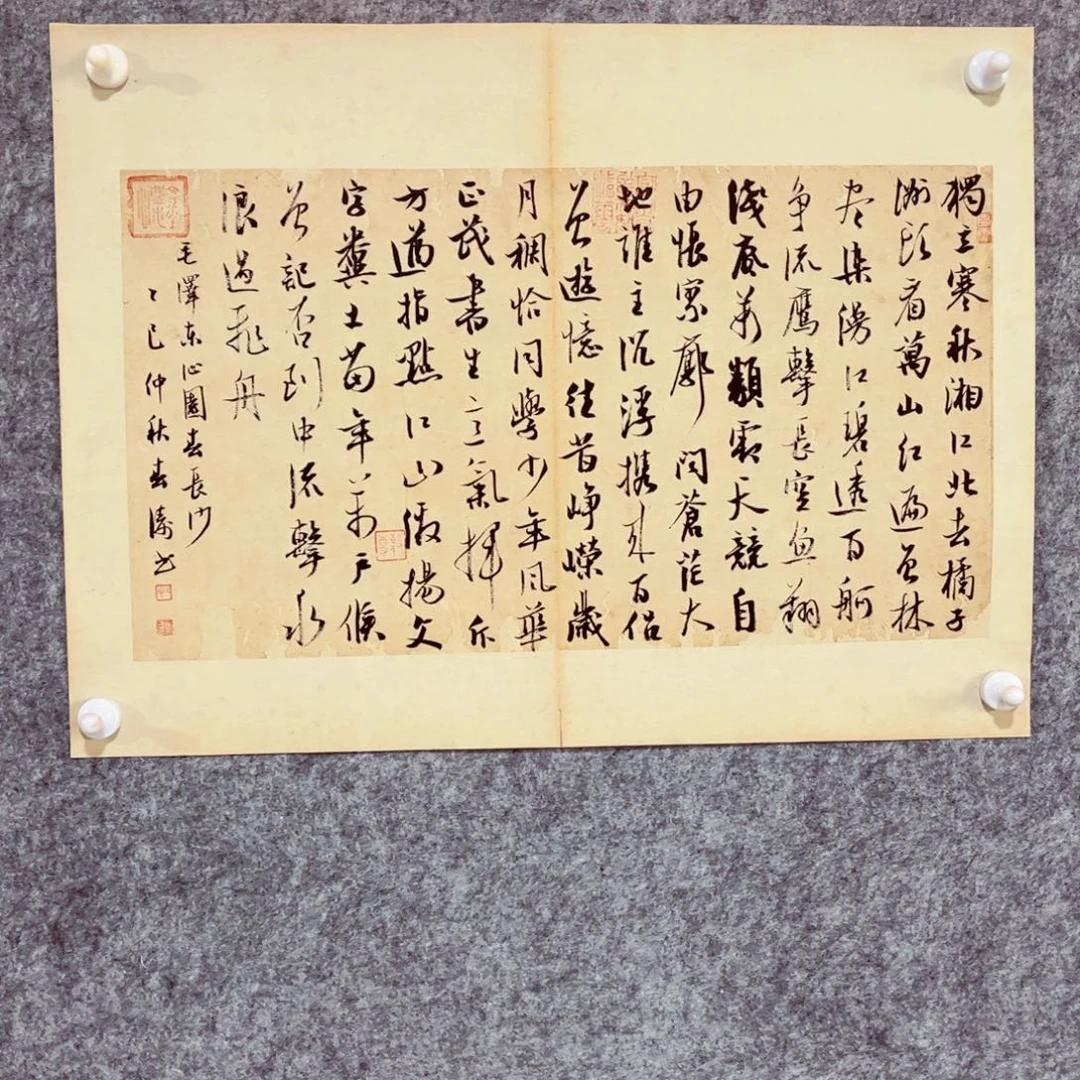 獨立寒秋湘江北去橘子
洲頭看萬山红遍層林
尽染漫江碧透百舸
争流鷹擊長空魚翔
淺底万類霜天競自
由悵寥廓問蒼茫大
地誰主沉浮攜來百侣
曾遊憶往昔崢嶸歲
月稠恰同學少年風華
正茂書生意氣揮斥
方遒指點江山激揚文
字糞土當年万户侯
曾記否到中流擊水
浪遏飛舟
毛澤東沁園春長沙
乙巳仲秋春濤书